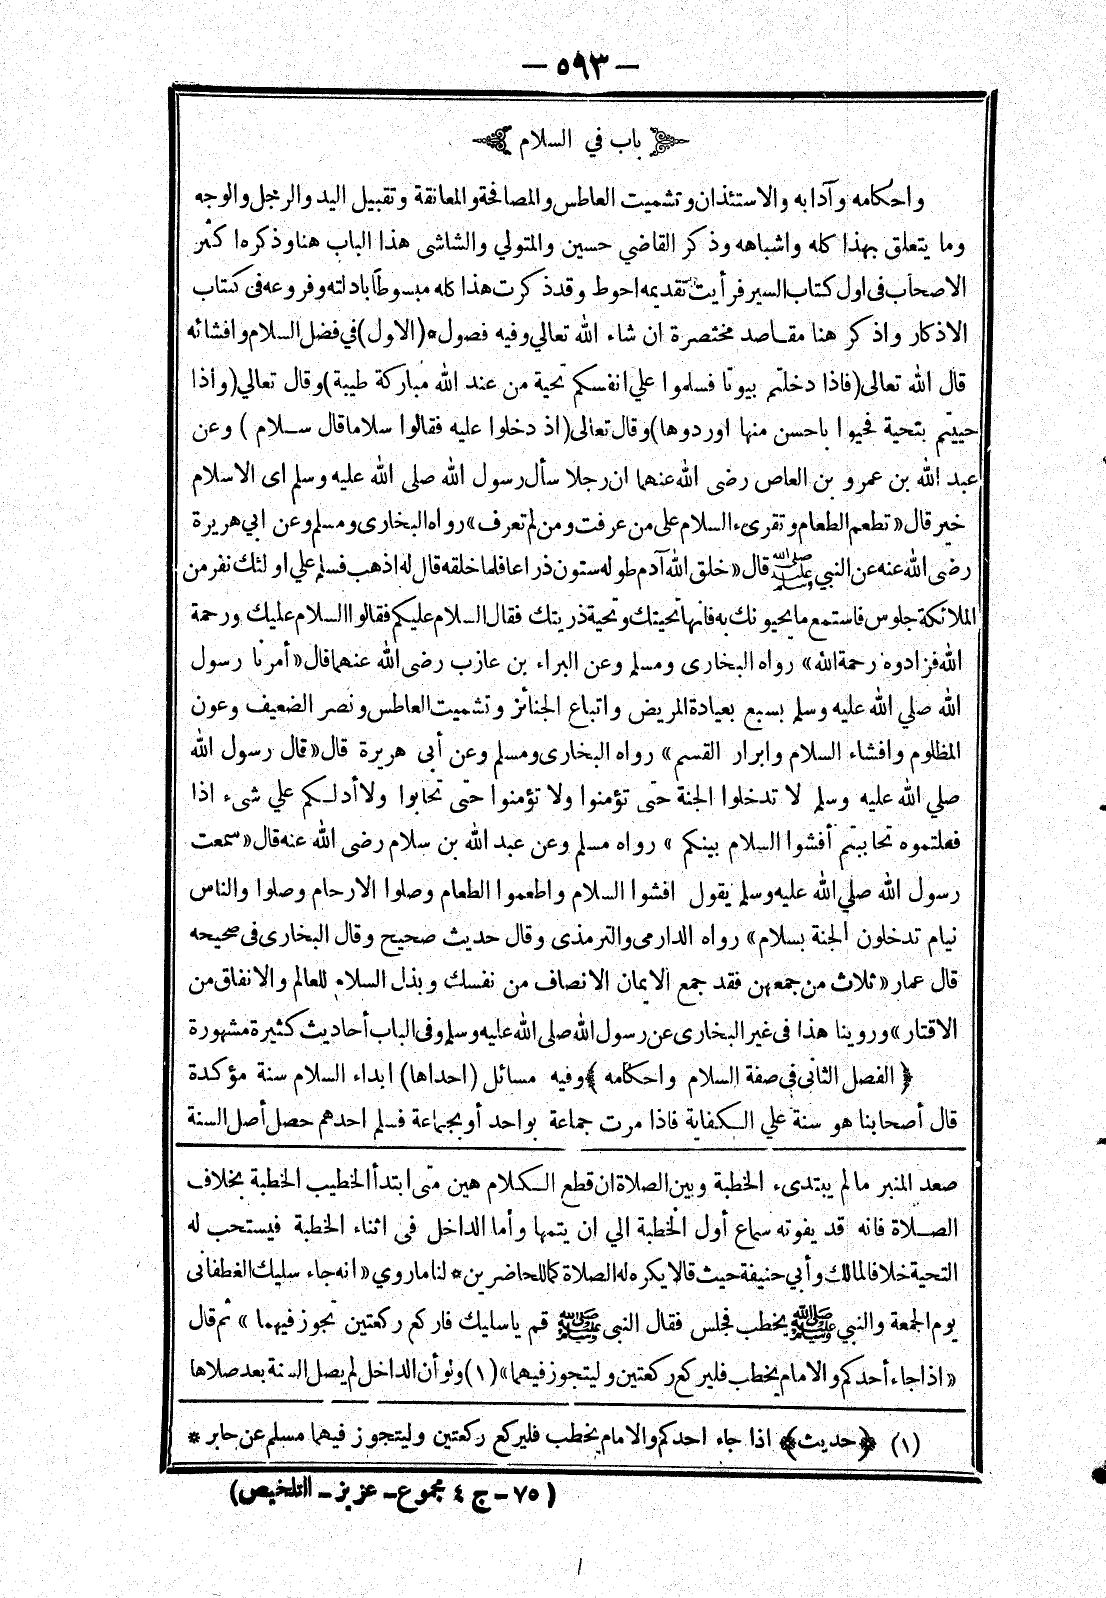 — ٥٩٣ —
باب في السلام
واحكامه وآدابه والاستئذان وتشميت العاطس والمصافحة والمعانقة وتقبيل اليد والرجل والوجه
وما يتعلق بهذا كله واشباهه وذكر القاضي حسين والمتولي والشاشى هذا الباب هنا وذكره اكثر
الاصحاب فى اول كتاب السير فرأيت تقديمه احوط وقد ذكرت هذا كله مبسوطاً بادلته وفروعه فى كتاب
الاذكار واذكر هنا مقاصد مختصرة ان شاء الله تعالي وفيه فصول * (الاول) في فضل السلام وافشائه
قال الله تعالى (فاذا دخلتم بيوتا فسلموا علي انفسكم تحية من عند الله مباركة طيبة) وقال تعالي (واذا
حييتم بتحية فحيوا باحسن منها اوردوها) وقال تعالى (اذ دخلوا عليه فقالوا سلاما قال سلام ) وعن
عبد الله بن عمرو بن العاص رضى الله عنهما ان رجلا سأل رسول الله صلى الله عليه وسلم اى الاسلام
خير قال « تطعم الطعام وتقرىء السلام علي من عرفت ومن لم تعرف » رواه البخارى ومسلم وعن ابي هريرة
رضى الله عنه عن النبي ﷺ قال « خلق الله آدم طوله ستون ذراعا فلما خلقه قال له اذهب فسلم علي اولئك نفر من
الملائكة جلوس فاستمع ما يحيونك به فانها تحيتك وتحية ذريتك فقال السلام عليكم فقالوا السلام عليك ورحمة
الله فزادوه رحمة الله » رواه البخارى ومسلم وعن البراء بن عازب رضى الله عنهما قال « أمرنا رسول
الله صلي الله عليه وسلم بسبع بعيادة المريض واتباع الجنائز وتشميت العاطس ونصر الضعيف وعون
المظلوم وافشاء السلام وابرار القسم » رواه البخارى ومسلم وعن أبى هريرة قال « قال رسول الله
صلي الله عليه وسلم لا تدخلوا الجنة حتى تؤمنوا ولا تؤمنوا حتى تحابوا ولا أدلكم علي شىء اذا
فعلتموه تحاببتم أفشوا السلام بينكم » رواه مسلم وعن عبد الله بن سلام رضى الله عنه قال « سمعت
رسول الله صلي الله عليه وسلم يقول افشوا السلام واطعموا الطعام وصلوا الارحام وصلوا والناس
نيام تدخلون الجنة بسلام » رواه الدارمى والترمذى وقال حديث صحيح وقال البخارى فى صحيحه
قال عمار « ثلاث من جمعهن فقد جمع الايمان الانصاف من نفسك وبذل السلام للعالم والانفاق من
الاقتار » وروينا هذا فى غير البخارى عن رسول الله صلى الله عليه وسلم وفى الباب أحاديث كثيرة مشهورة
﴿ الفصل الثانى في صفة السلام واحكامه ﴾ وفيه مسائل (احداها) ابداء السلام سنة مؤكدة
قال أصحابنا هو سنة علي الكفاية فاذا مرت جماعة بواحد أو بجماعة فسلم احدهم حصل أصل السنة
صعد المنبر مالم يبتدىء الخطبة وبين الصلاة ان قطع الكلام هين متى ابتدأ الخطيب الخطبة بخلاف
الصلاة فانه قد يفوته سماع أول الخطبة الي ان يتمها وأما الداخل فى اثناء الخطبة فيستحب له
التحية خلافا لمالك وأبي حنيفة حيث قالا يكره له الصلاة كما للحاضرين * لنا ما روي « انه جاء سليك الغطفانى
يوم الجمعة والنبي ﷺ يخطب فجلس فقال النبى ﷺ قم يا سليك فاركع ركعتين تجوز فيهما » ثم قال
« اذا جاء أحدكم والامام يخطب فليركع ركعتين وليتجوز فيهما » (١) ولو أن الداخل لم يصل السنة بعد صلاها
(١) ﴿ حديث ﴾ اذا جاء احدكم والامام يخطب فليركع ركعتين وليتجوز فيهما مسلم عن جابر *
(٧٥ - ج ٤ مجموع - عزيز - التلخيص)